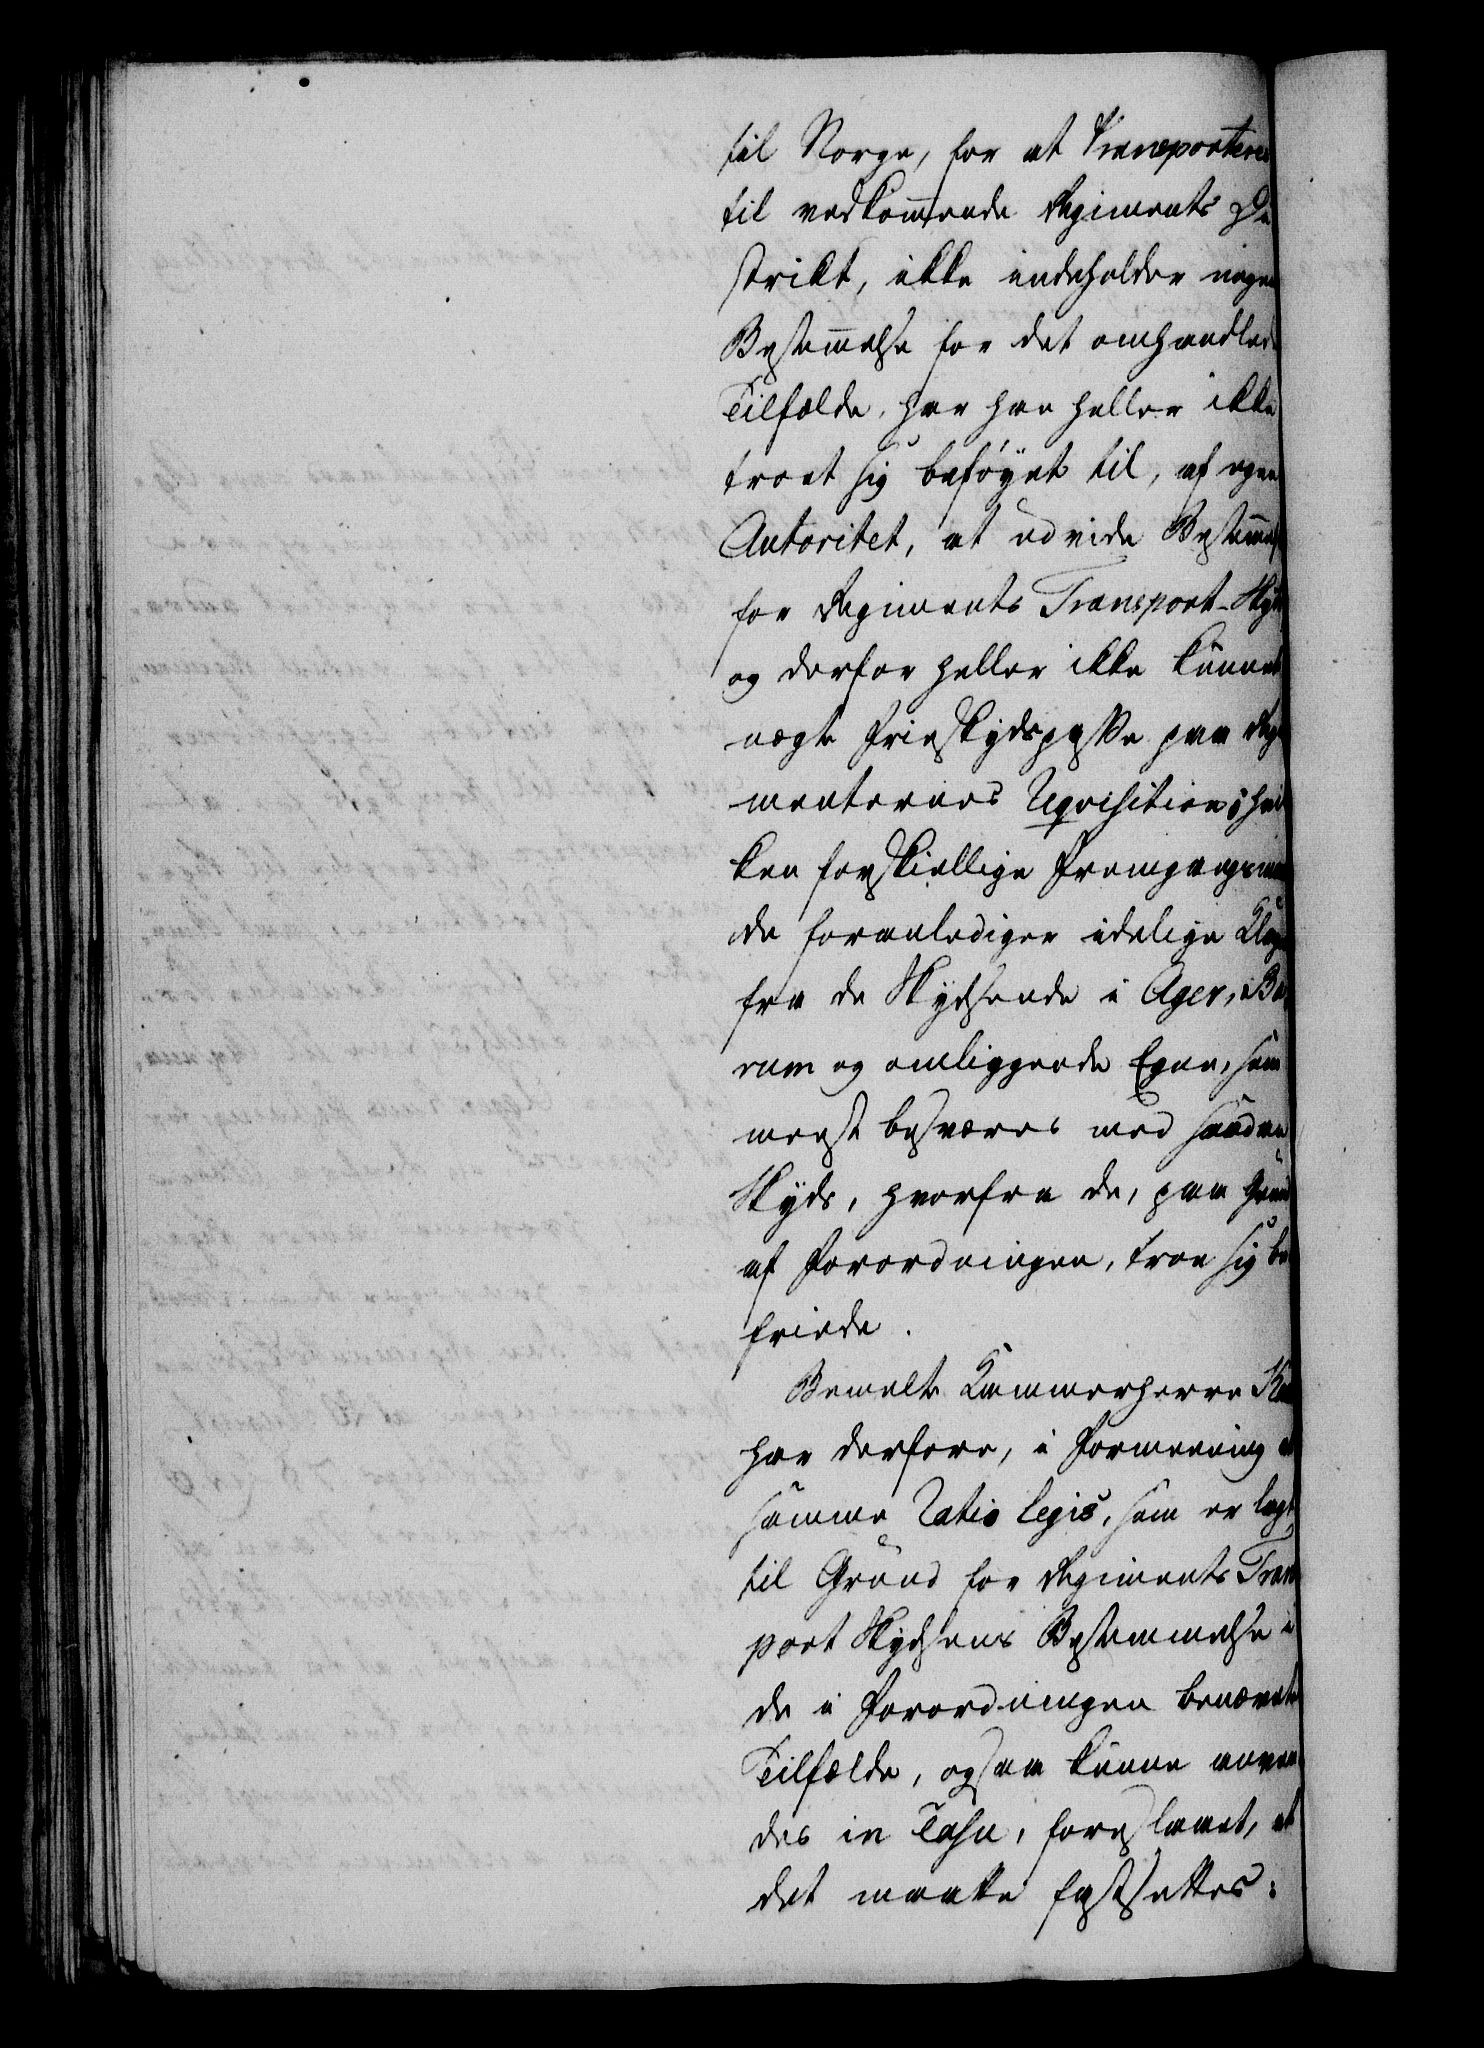 til Norge, for at Transportere
til vedkom̄ende Regiments Di
strikt, ikke indeholder nogen
Bestem̄else for det omhandlede
Tilfælde, har han heller ikke
troet sig beføyet til, af egen
Autoritet, at udvide Bestem̄els
for Regiments Transport-Skyds
og derfor heller ikke kunnet
nægte Frieskydspasse paa Regi
menternes Reqvisition; hvil
ken forskiellige Fremgangsmaa
de foranlediger idelige Klage
fra de Skydsende i Ager, Bæ
rum og omliggende Egne, som
meest besværes med saadan
Skyds, hvorfra de, paa Grund
af Forordningen, troe sig be
friede.
Bemelte Kammerherre Kaas
har derfore, i Formeening at
samme Ratio legis, som er lagt
til Grund for Regiments Trans
port Skydsens Bestemmelse i
de i Forordningen benævnte
Tilfælde, ogsaa kunne anven
des in Casu, foreslaaet, at
det maatte fastsættes: